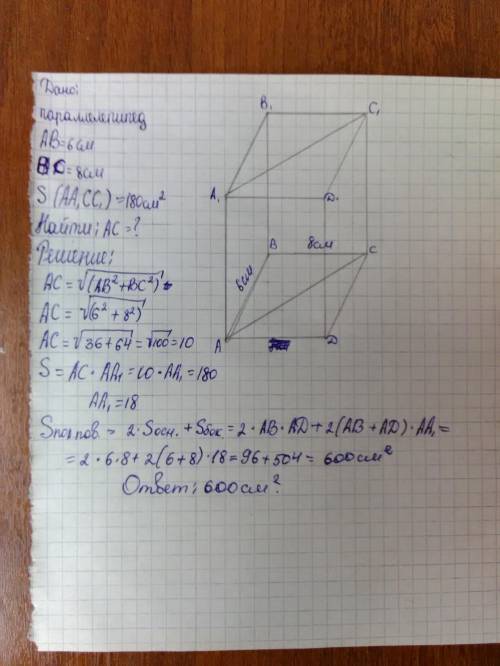 Дано:
параллелепипед
AB=6см
BC=8см
S (AA₁CC₁)=180см²
Найти: AC=?
Решение:
AC=√(AB²+BC²)
AC=√(6²+8²)
AC=√36+64=√100=10
S=AC·AA₁=10·AA₁=180
AA₁=18
Sпол пов.=2·Sосн.+Sбок=2·AB·AD+2(AB+AD)·AA₁=
=2·6·8+2(6+8)·18=96+504=600см²
Ответ: 600см².
B₁
C₁
A₁
D₁
B
8см
C
6см
A
D